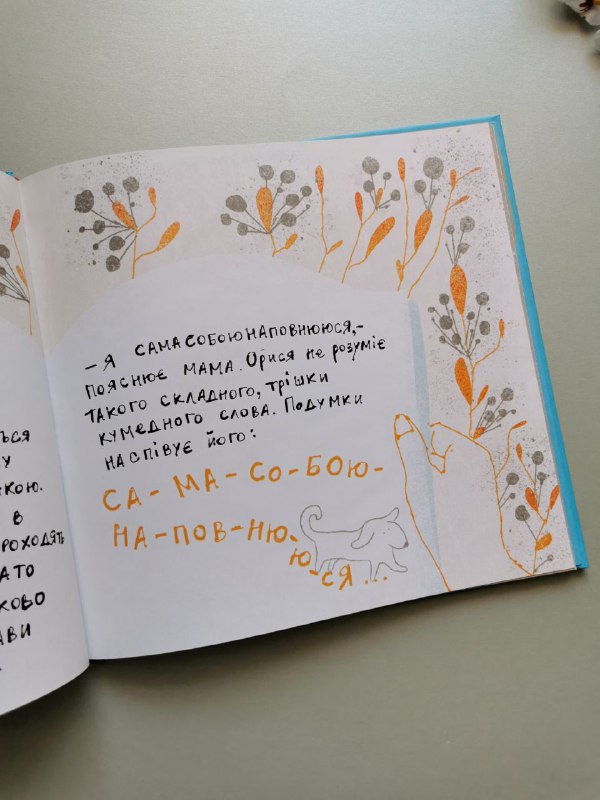 ТЬСЯ
У
ЖКОЮ.
В
РОХОДЯТЬ
АТО
КОВО
АВИ
– Я САМАСОБОЮНАПОВНЮЮСЯ, –
ПОЯСНЮЄ МАМА. Орися не розуміє
ТАКОГО СКЛАДНОГО, ТРІШКИ
КУМЕДНОГО СЛОВА. ПОДУМКИ
НАСПІВУЄ ЙОГО:
СА-МА-СО-БОЮ-
НА-ПОВ-НЮ-
Ю-
СЯ...